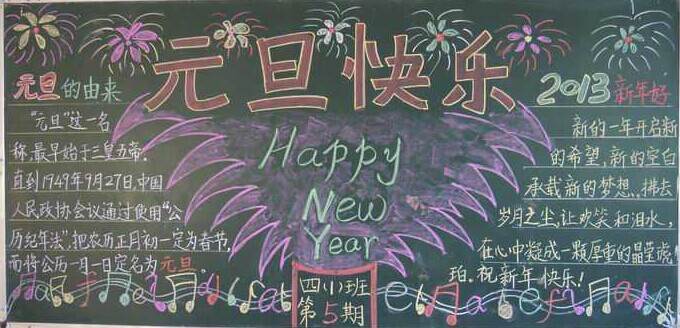 元旦快乐
元旦的由来
“元旦”这一名
称,最早始于三皇五帝.
直到1949年9月27日,中国
人民政协会议通过使用“公
历纪年法”,把农历正月初一定为春节,
而将公历一月一日定名为元旦。
Happy
New
Year
四(1)班
第5期
2013新年好
新的一年开启新
的希望,新的空白
承载新的梦想.拂去
岁月之尘,让欢笑和泪水,
在心中凝成一颗厚重的晶莹琥
珀.祝新年快乐!